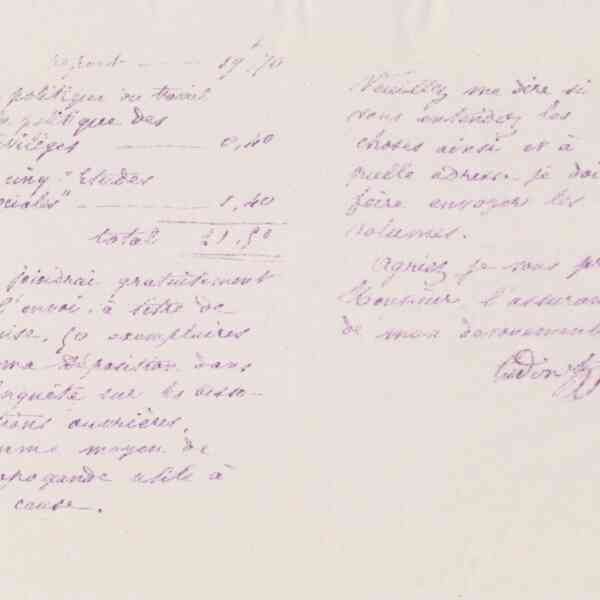 report - - - 19f,70
politique du travail
politique des
ivilèges — 0,40
cinq "Etudes
ociales" - - - 1,40
total 21,50
joindrai gratuitement
l'envoi, à titre de
ise, 50 exemplaires
ma déposition dans
enquête sur les asso-
tions ouvrières,
mme moyen de
opagande utile à
cause.
Veuillez me dire si
vous entendez les
choses ainsi et à
quelle adresse je doi
faire envoyer les
volumes.
Agréez je vous pr
Monsieur, l'assuran
de mon dévouement
Godin